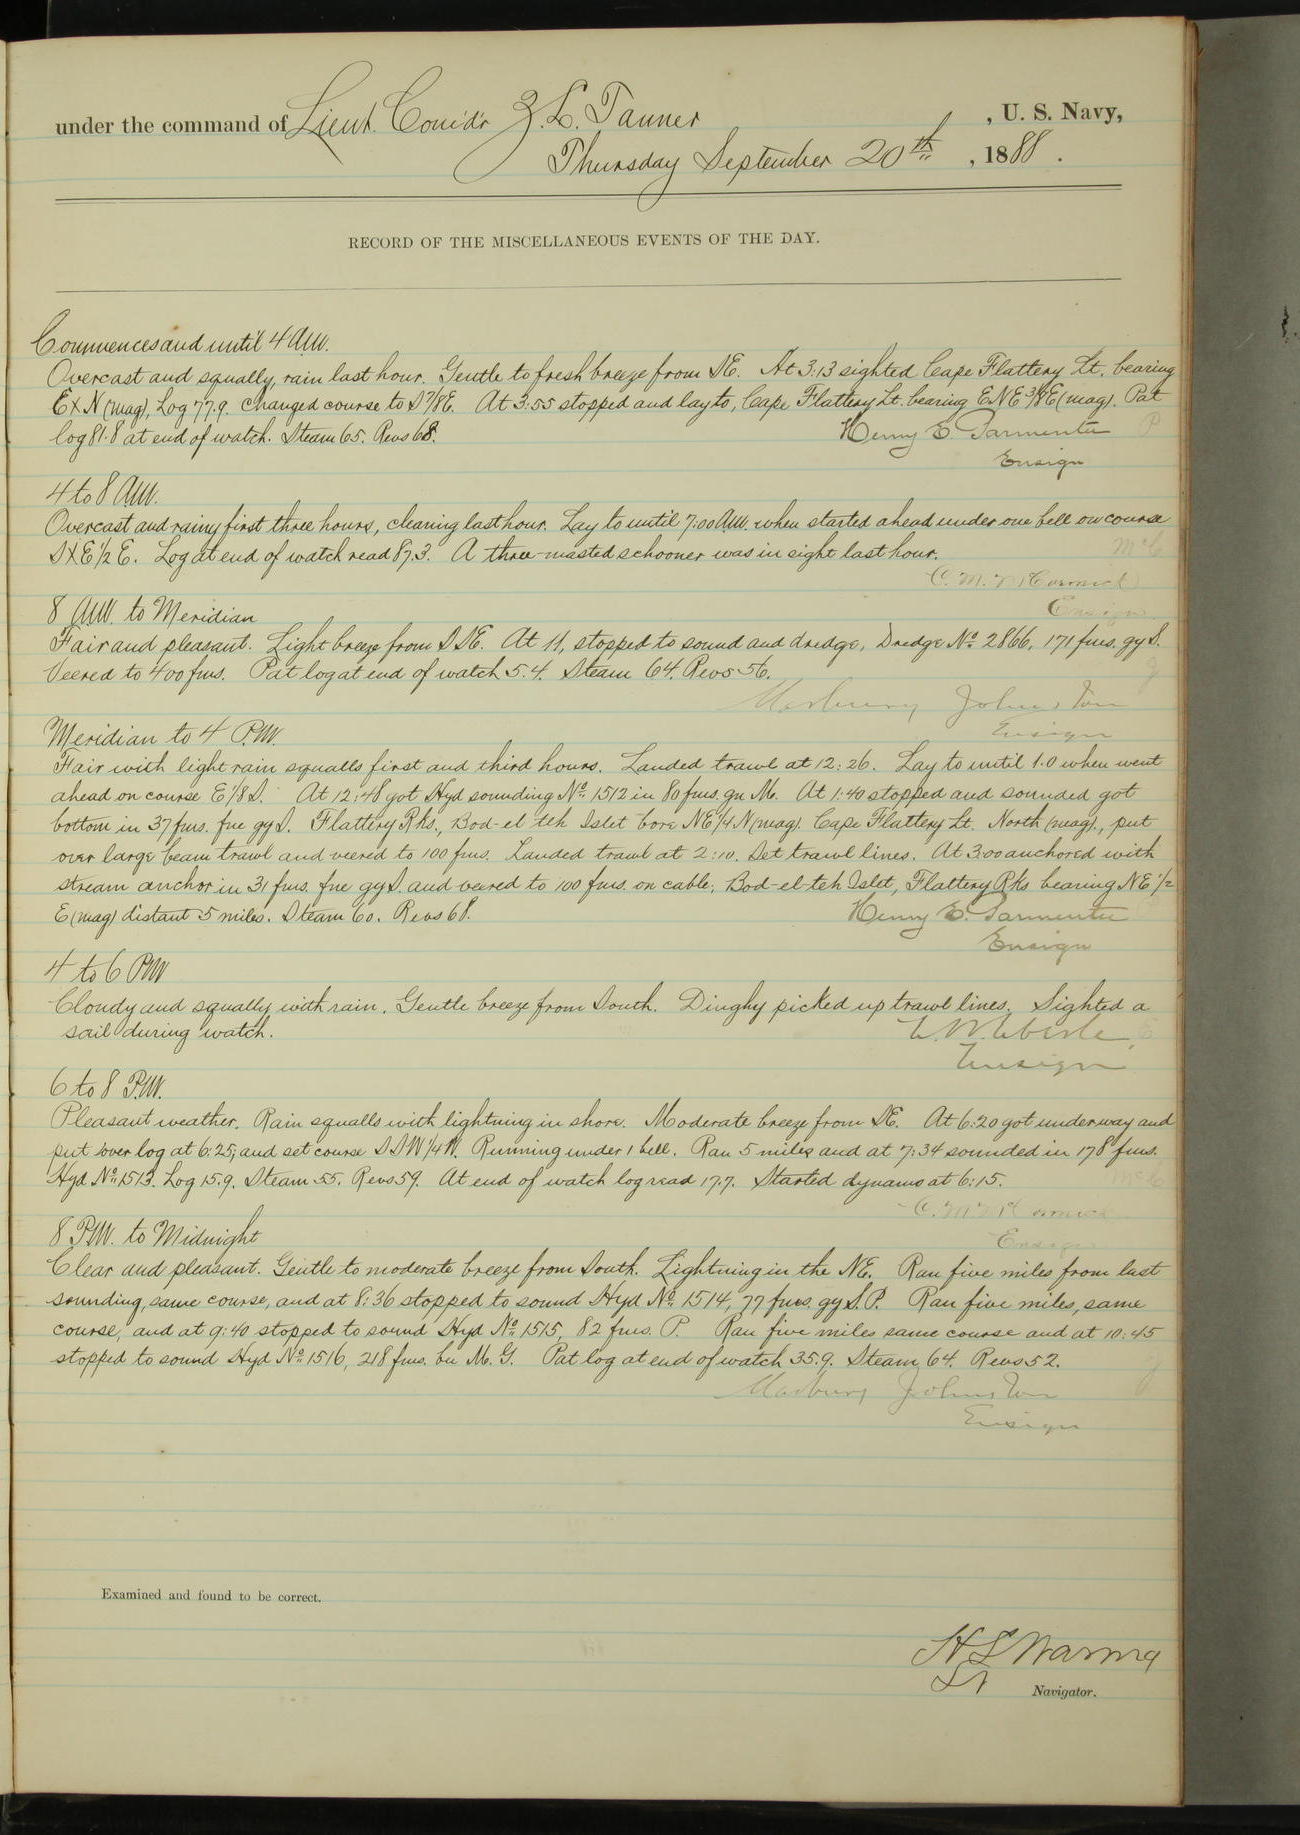 under the command of Lieut. Comdr Z. L. Tanner, U. S. Navy,
Thursday September 20th, 1888.
RECORD OF THE MISCELLANEOUS EVENTS OF THE DAY.
Commences and until 4 A.M.
Overcast and squally, rain last hour. Gentle to fresh breeze from SE. At 3:13 sighted Cape Flattery Lt. bearing
ExN (mag), Log 77.9. Changed course to S7/8E. At 3:55 stopped and lay to, Cape Flattery Lt. bearing ENE3/8E (mag). Pat
log 81.8 at end of watch. Steam 65. Revs 68.
Henry E. Parmenter
Ensign
4 to 8 A.M.
Overcast and rainy first three hours, clearing last hour. Lay to until 7:00 A.M. when started ahead under one bell on course
SxE1/2E. Log at end of watch read 87.3. A three-masted schooner was in sight last hour.
C. M. McCormick
Ensign
8 A.M. to Meridian
Fair and pleasant. Light breeze from SSE. At 11, stopped to sound and dredge, Dredge No. 2866, 171 fms. gy S.
Veered to 400 fms. Pat log at end of watch 5.4. Steam 64. Revs 56.
Marbury Johnston
Ensign
Meridian to 4 P.M.
Fair with light rain squalls first and third hours. Landed trawl at 12:26. Lay to until 1.0 when went
ahead on course E1/8S. At 12:48 got Hyd sounding No. 1512 in 80 fms. gn M. At 1:40 stopped and sounded got
bottom in 37 fms. fne gy S. Flattery Rks., Bod-el-teh Islet bore NE1/4N (mag). Cape Flattery Lt. North (mag)., put
over large beam trawl and veered to 100 fms. Landed trawl at 2:10. Set trawl lines. At 3:00 anchored with
stream anchor in 31 fms. fne gy S. and veered to 100 fms. on cable; Bod-el-teh Islet, Flattery Rks bearing NE1/2
E (mag) distant 5 miles. Steam 60. Revs 68.
Henry E. Parmenter
Ensign
4 to 6 PM
Cloudy and squally with rain. Gentle breeze from South. Dinghy picked up trawl lines. Sighted a
sail during watch.
E. W. Eberle,
Ensign
6 to 8 P.M.
Pleasant weather. Rain squalls with lightning in shore. Moderate breeze from SE. At 6:20 got underway and
put over log at 6:25; and set course SSW1/4W. Running under 1 bell. Ran 5 miles and at 7:34 sounded in 178 fms.
Hyd No. 1513. Log 15.9. Steam 55. Revs 59. At end of watch log read 17.7. Started dynamo at 6:15.
C. M. McCormick
Ensign
8 P.M. to Midnight
Clear and pleasant. Gentle to moderate breeze from South. Lightning in the NE. Ran five miles from last
sounding, same course, and at 8:36 stopped to sound Hyd No. 1514, 77 fms. gy S. P. Ran five miles, same
course, and at 9:40 stopped to sound Hyd No. 1515, 82 fms. P. Ran five miles same course and at 10:45
stopped to sound Hyd No. 1516, 218 fms. bu M. G. Pat log at end of watch 35.9. Steam 64. Revs 52.
Marbury Johnston
Ensign
Examined and found to be correct.
Lt
Navigator.